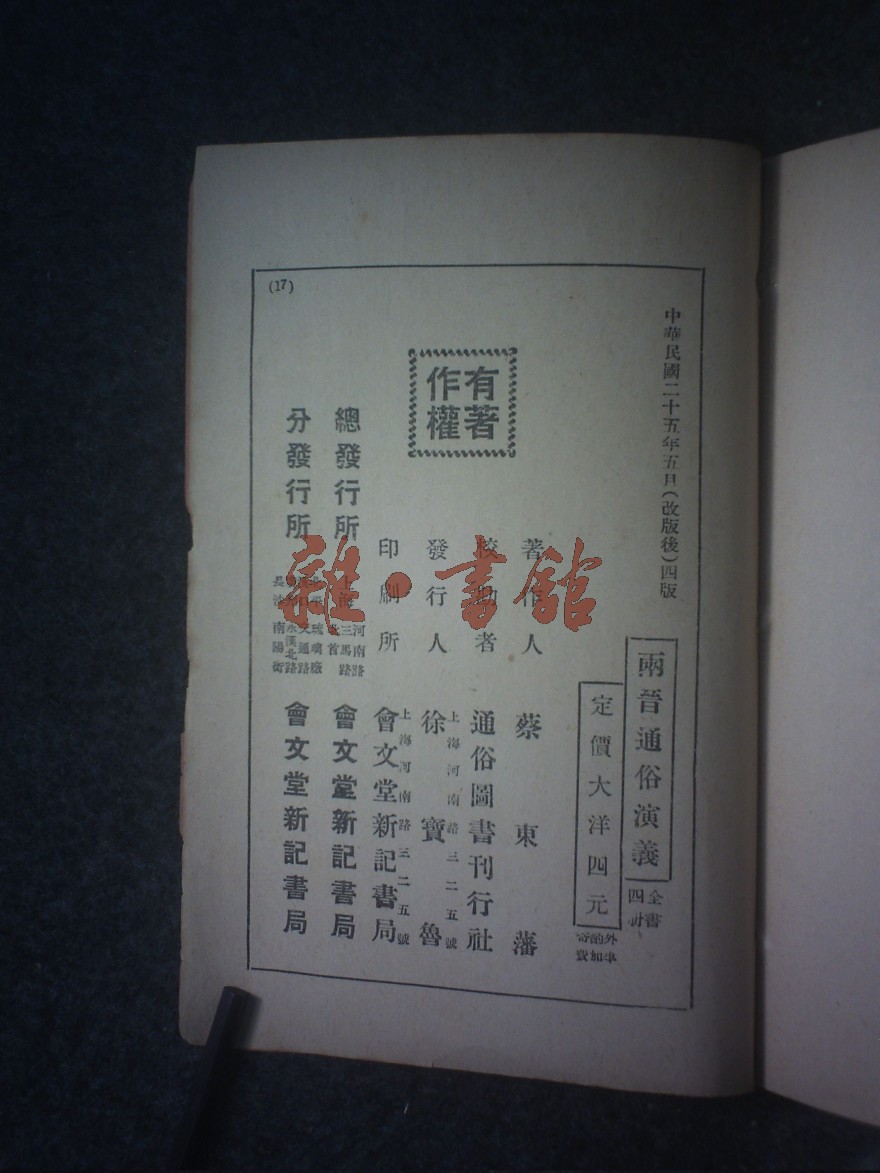 中華民國二十五年五月(改版後)四版
兩晉通俗演義
全書
四冊
定價大洋四元
外埠
酌加
寄費
著作人 蔡東藩
校勘者 通俗圖書刊行社
發行人 徐寶魯
上海河南路三二五號
印刷所 會文堂新記書局
上海河南路三二五號
有著
作權
總發行所 上海 河南路
三馬路
首 會文堂新記書局
分發行所 琉璃廠
交通路
永漢北路
長沙 南陽街 會文堂新記書局
(17)
雜·書館